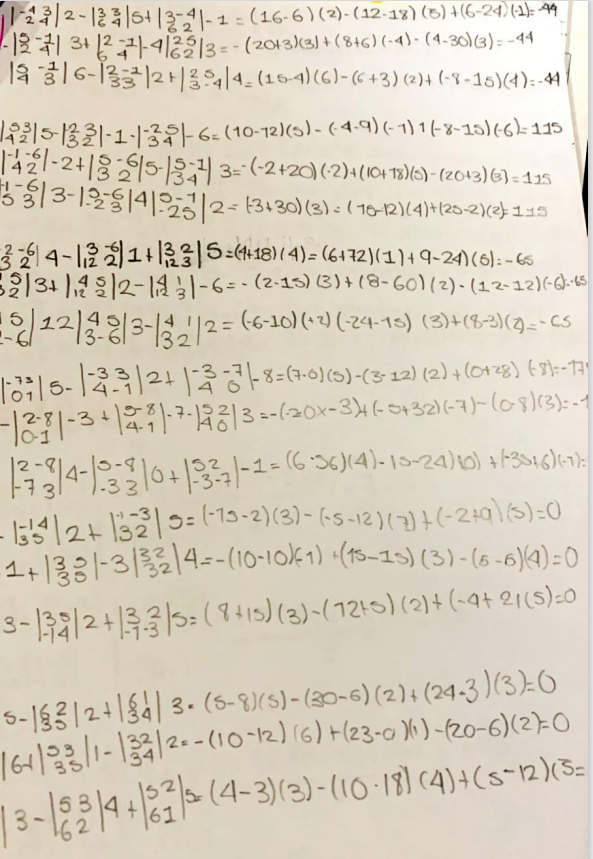 |-4 3/2 4| 2 - |3 3/2 4| 5 + |3 -4/6 2| - 1 = (16-6)(2) - (12-18)(5) + (6-24)(-1) = -44
- |5 -1/2 4| 3 + |2 -1/6 4| - 4 |2 5/6 2| 3 = - (20+3)(3) + (8+6)(-4) - (4-30)(3) = -44
|5 -1/4 3| 6 - |3 -2/3 3| 2 + |2 5/3 -4| 4 = (15-4)(6) - (6+3)(2) + (-8-15)(4) = -44
|5 3/4 2| 5 - |2 3/3 2| -1 - |-2 5/3 4| - 6 = (10-12)(5) - (-4-9)(-1) 1 (-8-15)(-6) = 115
|-1 -6/4 2| - 2 + |5 -6/3 2| 5 - |5 -1/3 4| 3 = -(-2+20)(-2) + (10+18)(5) - (20+3)(3) = 115
|-1 -6/5 3| 3 - |5 -6/-2 3| 4 |5 -1/-2 5| 2 = (-3+30)(3) = (15-12)(4) + (25-2)(2) = 115
|2 -6/3 2| 4 - |3 -6/12 2| 1 + |3 2/12 3| 5 = (4+18)(4) = (6+72)(1) + 9-24)(5) = -65
|5/2| 3 + |4 5/12 2| 2 - |4 1/12 3| - 6 = - (2-15)(3) + (8-60)(2) - (12-12)(-6) = -65
|5/-6| 12 | 4 5/3 -6| 3 - |4 1/3 2| 2 = (-6-10)(+2) (-24-15) (3) + (8-3)(2) = -65
|-7 3/0 1| 5 - |-3 3/4 -1| 2 + |-3 -7/4 0| - 8 = (7-0)(5) - (3-12)(2) + (0+28)(-8) = -17
- |2 -8/0 -1| - 3 + |5 -8/4 -1| - 7 - |5 2/4 0| 3 = -(-20x-3) + (-5+32)(-7) - (0-8)(3) = -1
|2 -8/-7 3| 4 - |5 -8/-3 3| 0 + |5 2/-3 -7| - 1 = (6-56)(4) - 15-24)(0) + (-35+6)(-1) =
- |-1 4/3 5| 2 + |-1 -3/3 2| 5 = (-15-2)(3) - (-5-12)(7) + (-2+9)(5) = 0
1 + |3 5/3 5| - 3 |3 2/3 2| 4 = -(10-10)(-1) + (15-15)(3) - (6-6)(4) = 0
3 - |3 5/-1 4| 2 + |3 2/-1 -3| 5 = (8+15)(3) - (12+5)(2) + (-4+21(5) = 0
5 - |6 2/3 5| 2 + |6 1/3 4| 3 = (5-8)(5) - (30-6)(2) + (24-3)(3) = 0
|6+ |5 3/3 5| 1 - |3 2/3 4| 2 = -(10-12)(6) + (23-0)(1) - (20-6)(2) = 0
| 3 - |5 3/6 2| 4 + |5 2/6 1| 5 = (4-3)(3) - (10-18)(4) + (5-12)(5 =